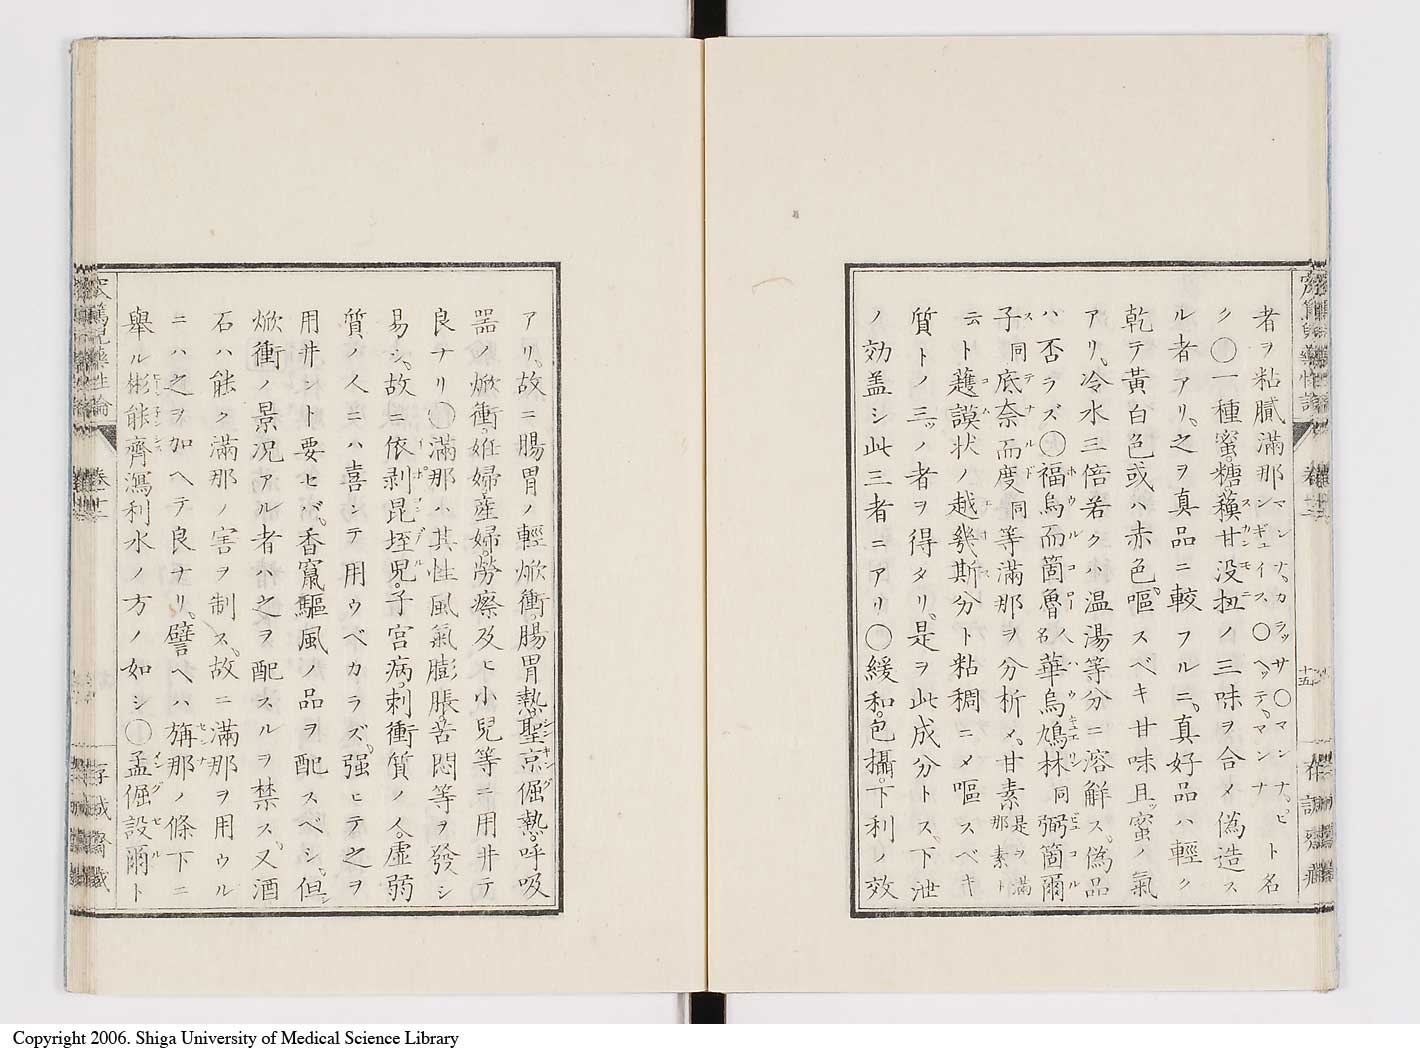 者ヲ粘膩滿那マンナ、カラッサ〇マンナ、ピンギュイス、〇ヘッテ、マンナト名
ク〇一種蜜。糖蘓甘没扭スカンモニノ三味ヲ合メ偽造ス
ル者アリ。之ヲ真品ニ較フルニ。真好品ハ輕ク
乾テ黄白色或ハ赤色。嘔スベキ甘味且ッ蜜ノ氣
アリ。冷水三倍若クハ温湯等分ニ溶解ス。偽品
ハ否ラズ〇福烏而箇魯ホウルコロー人名華烏鳩林ハウキュエリン同弼箇爾ピコル
子同底奈而度ステナルド同等滿那ヲ分析メ。甘素是ヲ滿那素ト
云ト護謨状ノ越幾斯分ト粘稠ニメ嘔スベキ
質トノ三ッノ者ヲ得タリ。是ヲ此成分トス。下泄
ノ効盖シ此三者ニアリ〇緩和。包攝。下利ノ效
アリ。故ニ腸胃ノ輕焮衝。腸胃熱。聖京倔シンキング熱。呼吸
器ノ焮衝。妊婦。産婦。勞瘵及ヒ小兒等ニ用井テ
良ナリ〇滿那ハ其性風氣膨脹。苦悶等ヲ發シ
易シ。故ニ依剥昆垤兒。子宮病。刺衝質ノ人。虚弱
質ノ人ニハ喜ンテ用ウベカラズ。强ヒテ之ヲ
用井ント要セバ。香竄驅風ノ品ヲ配スベシ。但シ
焮衝ノ景况アル者ハ之ヲ配スルヲ禁ス。又酒
石ハ能ク滿那ノ害ヲ制ス。故ニ滿那ヲ用ウル
ニハ之ヲ加ヘテ良ナリ。譬ヘハ旃那センナノ條下ニ
舉ル彬能齊瀉利水ノ方ノ如シ〇孟倔設爾メングセルト
Copyright 2006. Shiga University of Medical Science Library